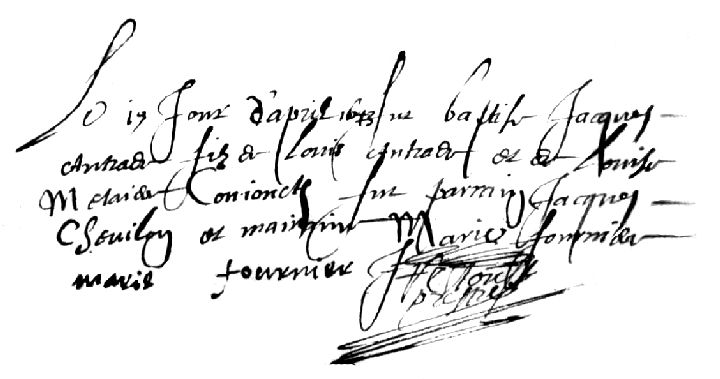 Le 17 Jour d'apvril 1673 fut baptise Jacques
Andrade filz de Louis Andrade et de Louise
Metaier Conioncts fut parrain Jacques
Chevilon et marrain Marie fournier
marie fournier
prestre